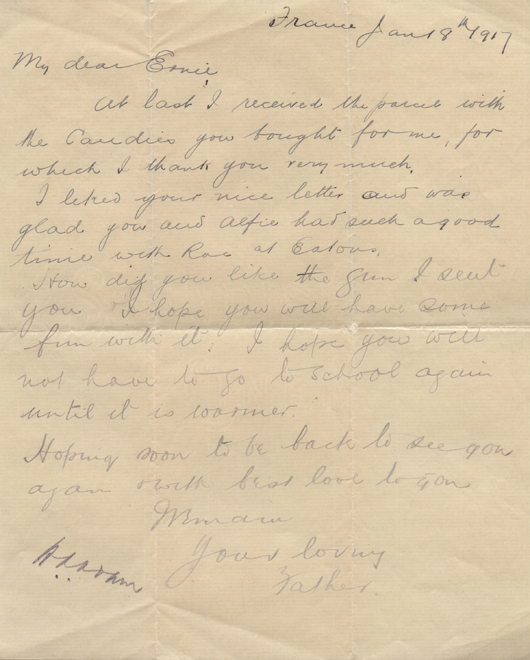 France Jan 8th 1917
My dear Ernie,
At last I received the parcel with
the Candies you bought for me, for
which I thank you very much.
I liked your nice letter and was
glad you and Alfie had such a good
time with Rae at Eatons.
How did you like the gun I sent
you I hope you will have some
fun with it. I hope you will
not have to go to school again
until it is warmer.
Hoping soon to be back to see you
again with best love to you
I Remain
Your loving
Father.